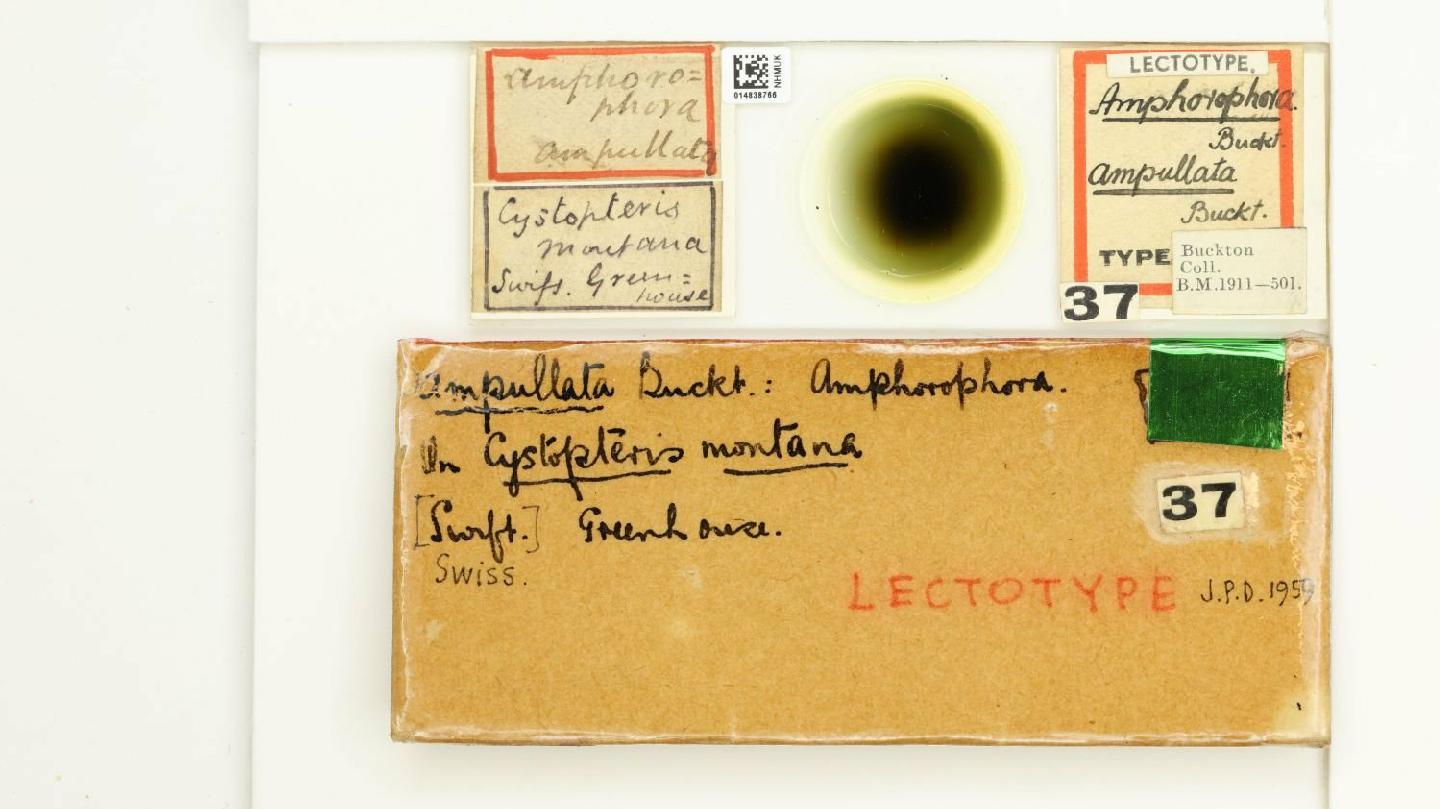 Amphoro=
phora
ampullata
Cystopteris
montana
Swiss. Green=
house
NHMUK
014838766
LECTOTYPE.
Amphorophora.
Buckt.
ampullata
Buckt.
TYPE
Buckton
Coll.
B.M.1911—501.
37
ampullata Buckt.: Amphorophora.
On Cystopteris montana
[Swift.] Greenhouse.
Swiss.
37
LECTOTYPE J.P.D. 1959